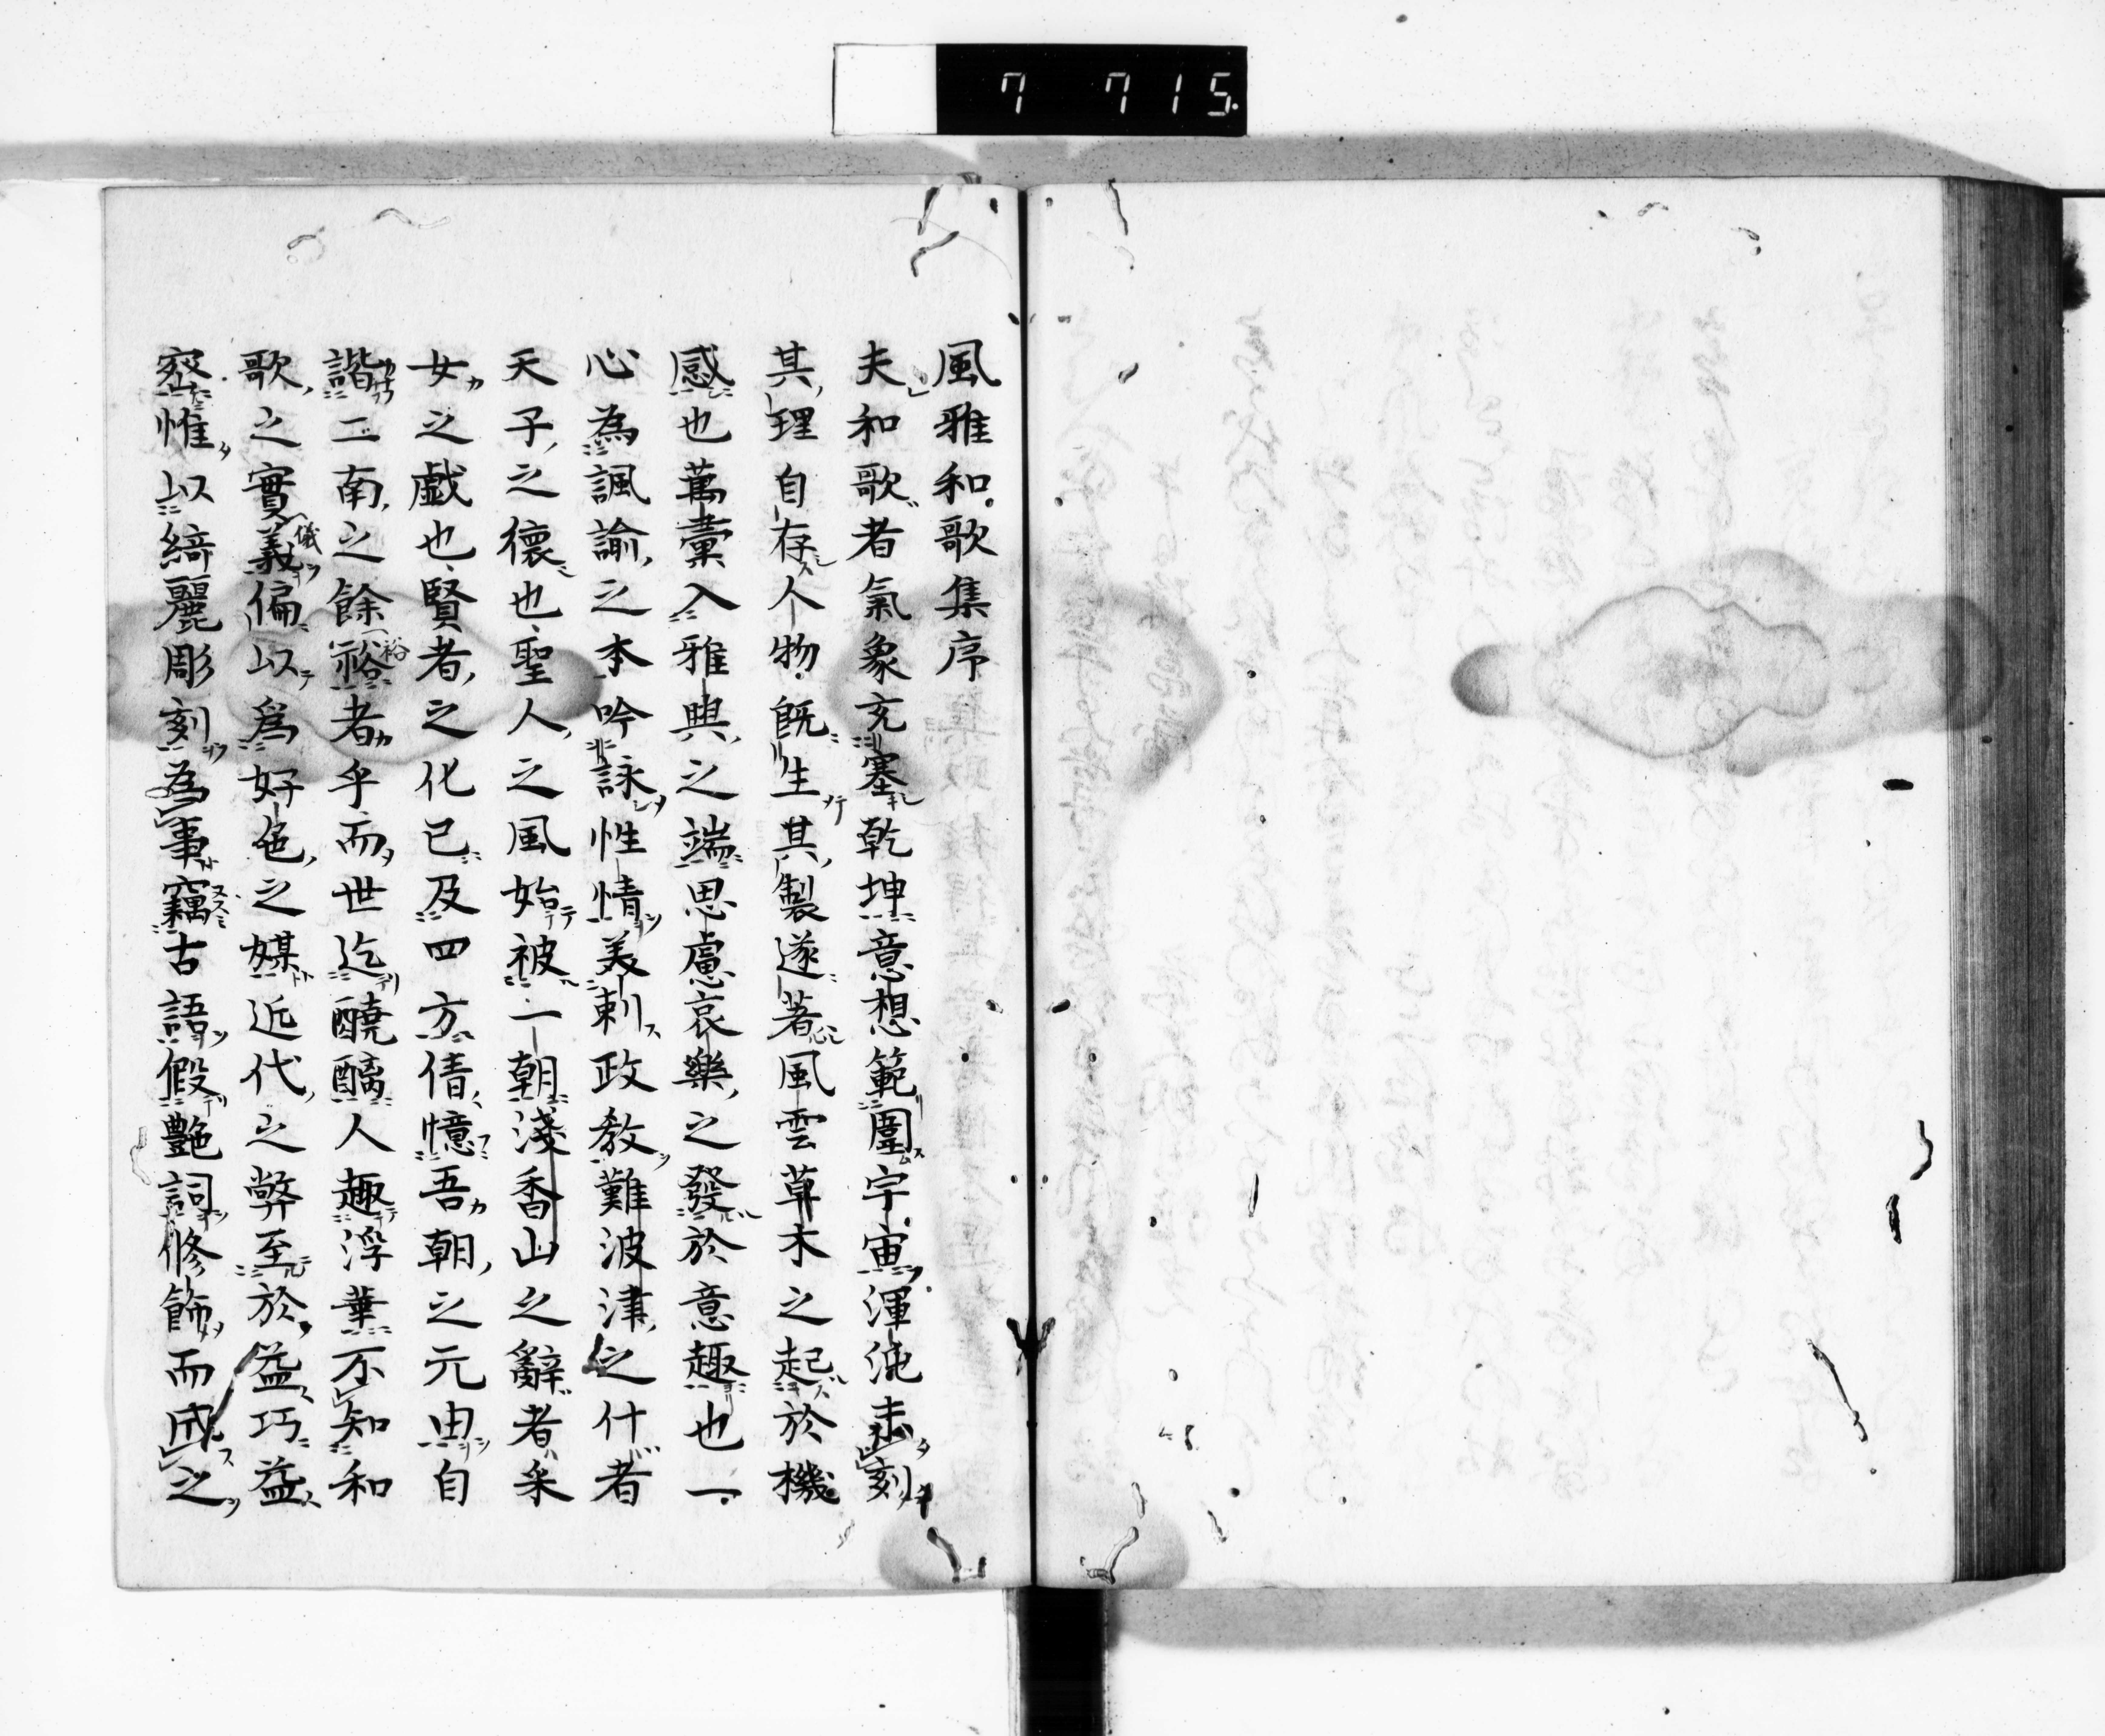 7 715.
風雅和歌集序
夫和歌者氣象充塞乾坤意想範圍宇宙渾沌未刻
其理自存人物既生其製遂著風雲草木之起於機
感也萬彙入雅興之端思慮哀樂之發於意趣也一
心為諷諭之本吟詠性情美刺政教難波津之什者
天子之德也聖人之風始被一朝淺香山之辭者采
女之戯也賢者之化已及四方倩憶吾朝之元由自
諧二南之餘裕者乎而世迄醨人趣浮華不知和
歌之實義偏以爲好色之媒近代之弊至於益巧益
密惟以綺麗彫刻為事竊古語假艶詞修飾而成之